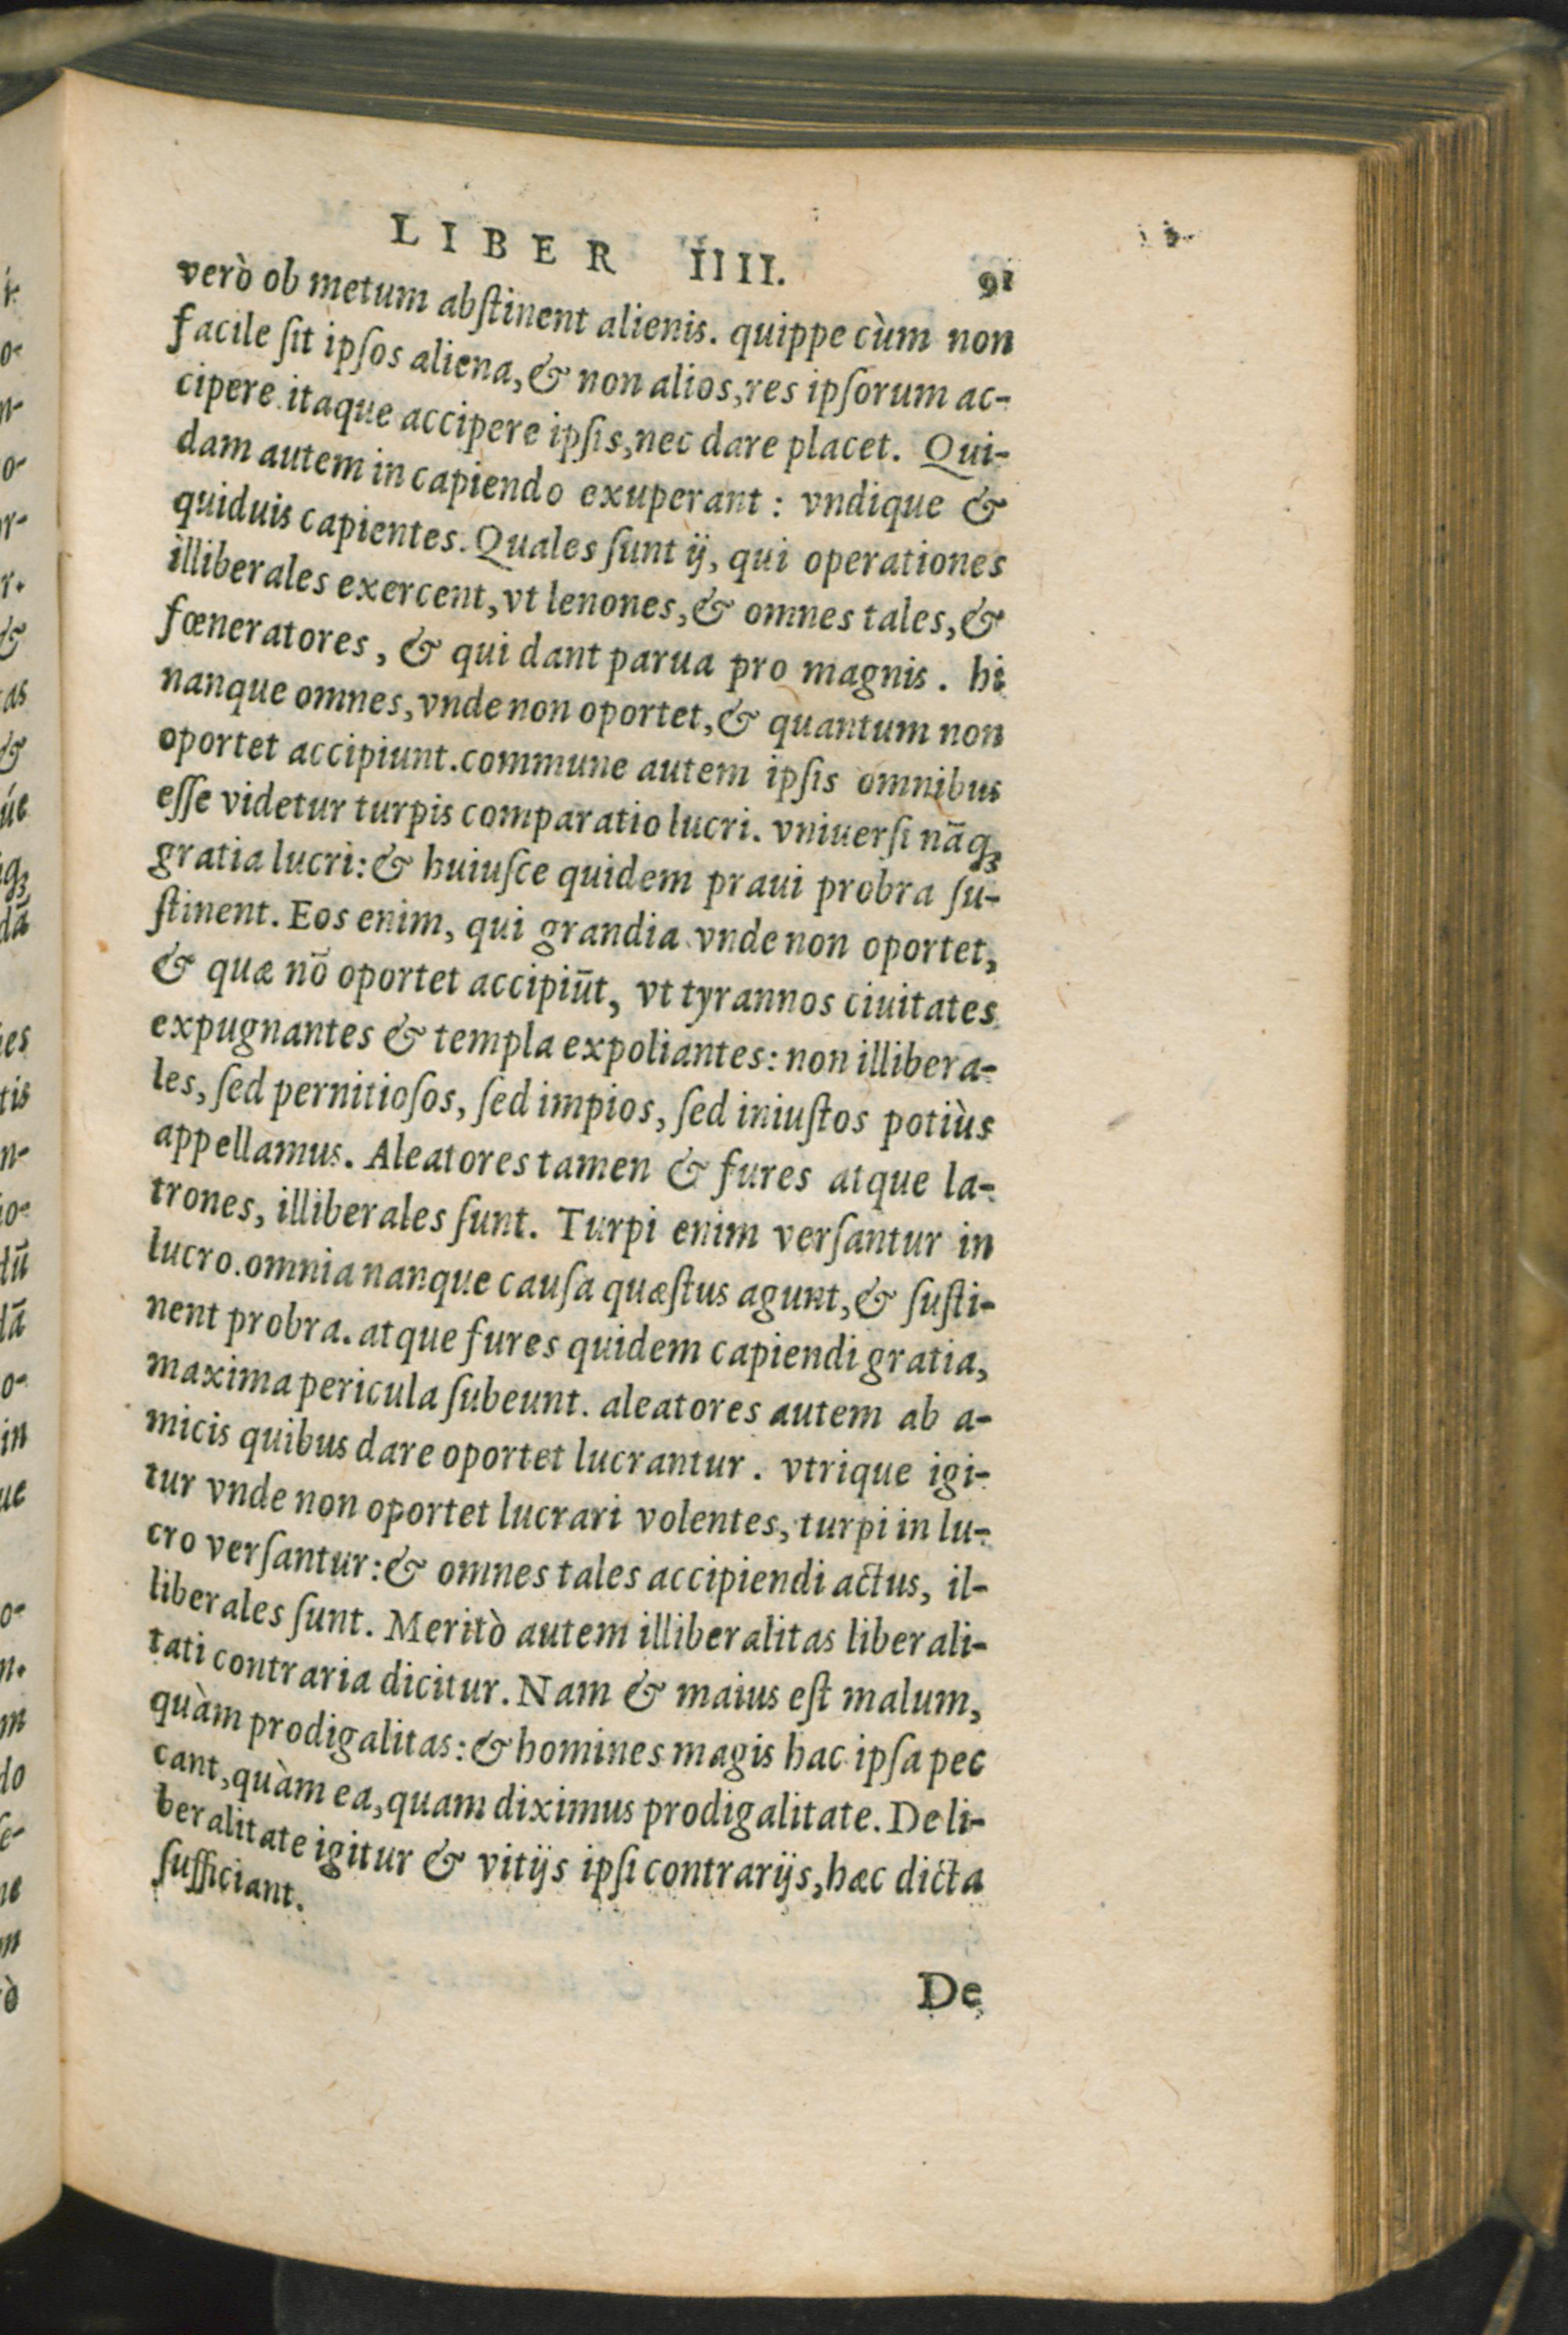 LIBER IIII. 91
verò ob metum abſtinent alienis. quippe cùm non
facile ſit ipſos aliena, & non alios, res ipſorum ac-
cipere. itaque accipere ipſis, nec dare placet. Qui-
dam autem in capiendo exuperant: vndique &
quiduis capientes. Quales ſunt ij, qui operationes
illiberales exercent, vt lenones, & omnes tales, &
fœneratores, & qui dant parua pro magnis. hi
nanque omnes, vnde non oportet, & quantum non
oportet accipiunt. commune autem ipſis omnibus
eſſe videtur turpis comparatio lucri. vniuerſi nāq;
gratia lucri: & huiuſce quidem praui probra ſu-
ſtinent. Eos enim, qui grandia vnde non oportet,
& quæ nō oportet accipiūt, vt tyrannos ciuitates
expugnantes & templa expoliantes: non illibera-
les, ſed pernitioſos, ſed impios, ſed iniuſtos potiùs
appellamus. Aleatores tamen & fures atque la-
trones, illiberales ſunt. Turpi enim verſantur in
lucro. omnia nanque cauſa quæſtus agunt, & ſuſti-
nent probra. atque fures quidem capiendi gratia,
maxima pericula ſubeunt. aleatores autem ab a-
micis quibus dare oportet lucrantur. vtrique igi-
tur vnde non oportet lucrari volentes, turpi in lu-
cro verſantur: & omnes tales accipiendi actus, il-
liberales ſunt. Meritò autem illiberalitas liberali-
tati contraria dicitur. Nam & maius eſt malum,
quàm prodigalitas: & homines magis hac ipſa pec
cant, quàm ea, quam diximus prodigalitate. De li-
beralitate igitur & vitijs ipſi contrarijs, hæc dicta
ſufficiant.
De